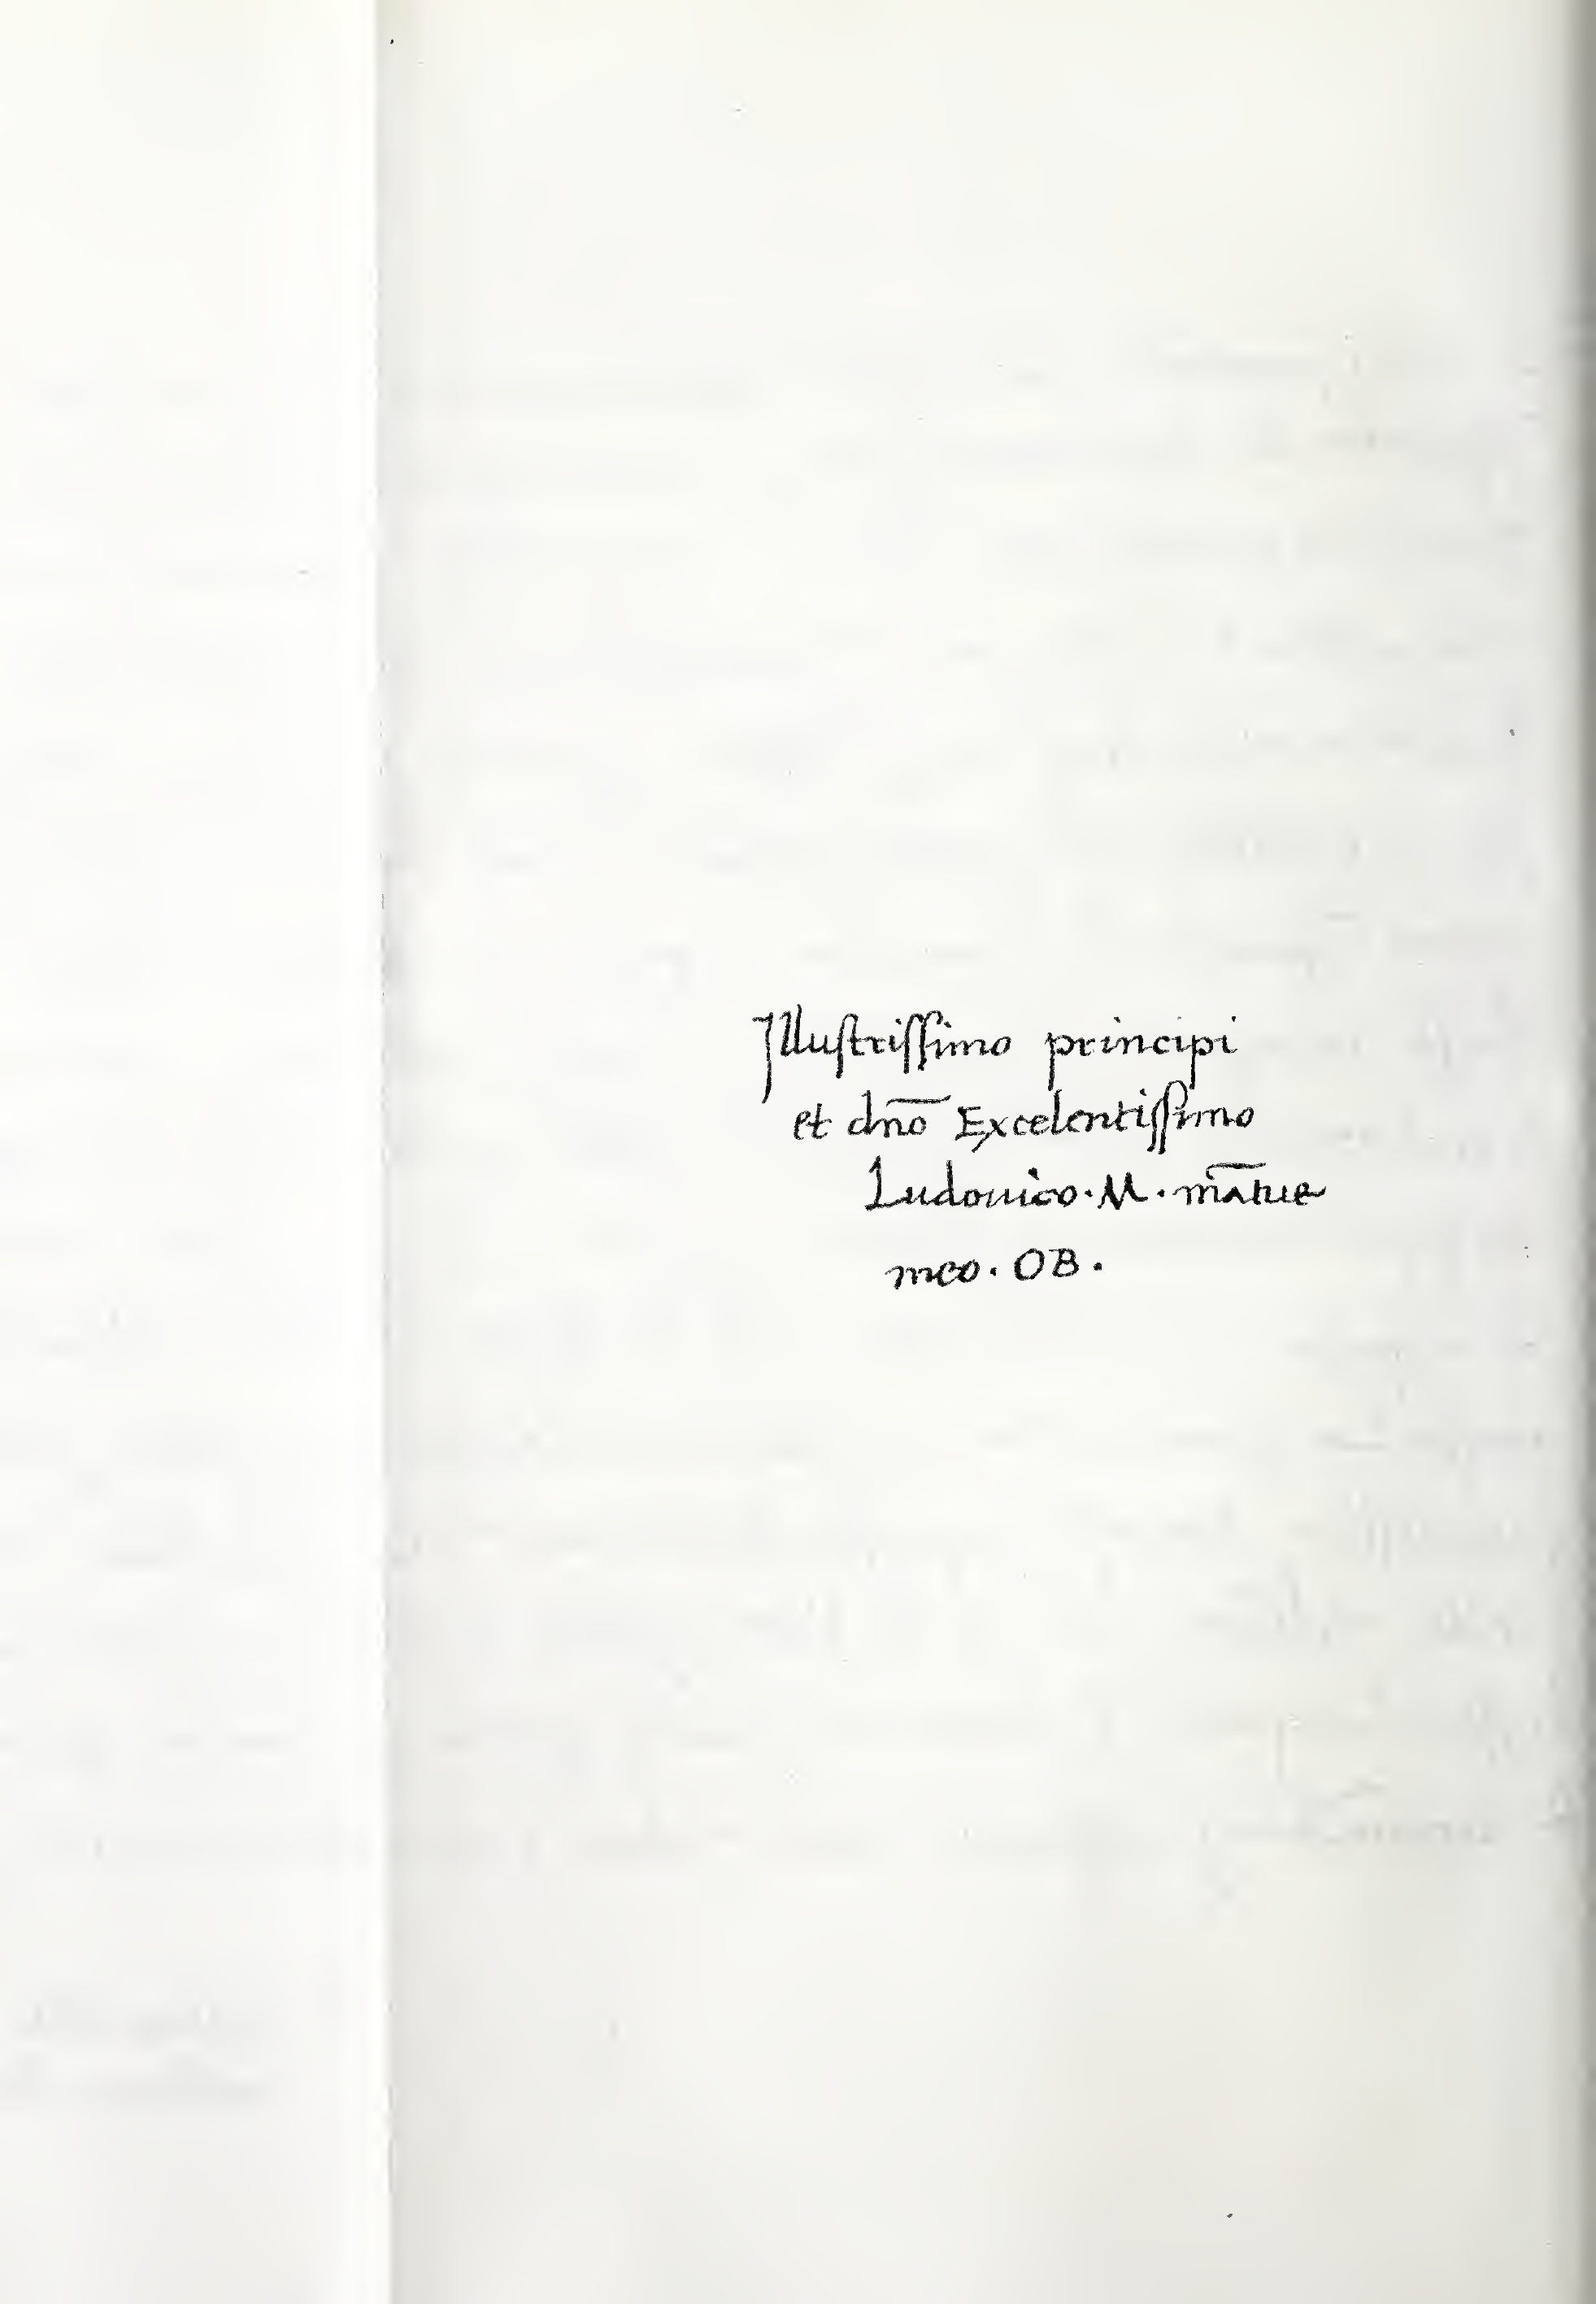 Jlluſtriſſimo principi
et dn̄o Excelentiſſimo
Ludouico · M · mātue
meo · OB ·